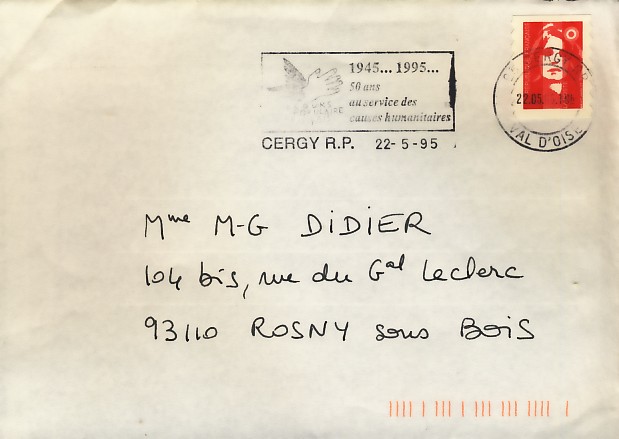 1945... 1995...
50 ans
au service des
causes humanitaires
CERGY R.P. 22-5-95
22.05.
VAL D'OISE
Mme M-G DIDIER
104 bis, rue du Gal Leclerc
93110 ROSNY sous BOIS